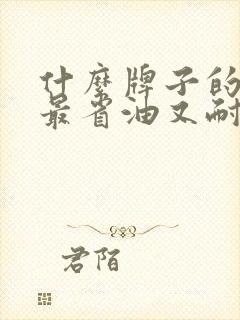 什麽牌子的
最省油又耐
君陌